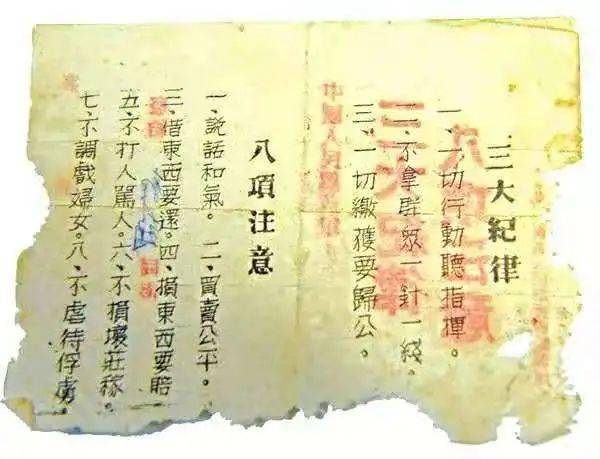 三大紀律
一、一切行動聽指揮。
二、不拿群眾一針一綫。
三、一切繳獲要歸公。
八項注意
一、説話和氣。二、買賣公平。
三、借東西要還。四、損東西要賠
五、不打人駡人。六、不損壞莊稼。
七、不調戲婦女。八、不虐待俘虜。
中國人民